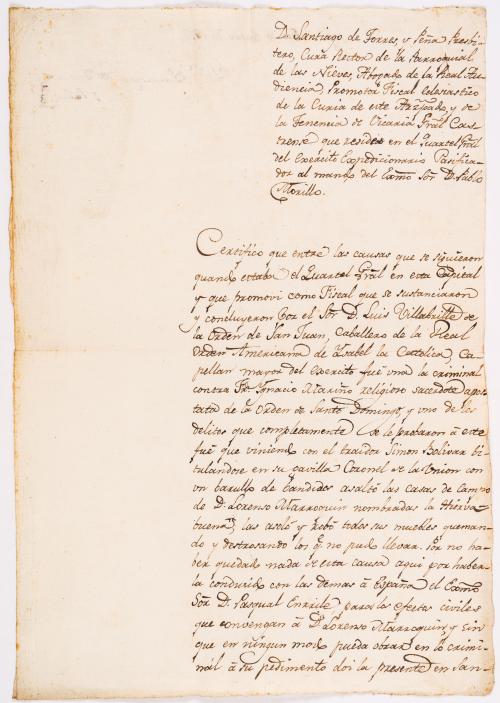 D. Santiago de Torres, y Peña Presbi-
tero, Cura Rector de la Parroquial
de las Nieves, Abogado de la Real Au-
diencia, Promotor Fiscal eclesiastico
de la Curia de este Arzpado, y de
la Tenencia de Vicaria Gral Cas-
trense que reside en el Quartel Gral
del Exercito Expedicionario Pacifica-
dor al mando del Exmo Sor D. Pablo
Morillo.
Certifico que entre las causas que se siguieron
quando estaba el Quartel Gral en esta Capital
y que promovi como Fiscal que se sustanciaron
y concluyeron por el Sor D. Luis Villabrille de
la Orden de San Juan, Caballero de la Real
Orden Americana de Ysabel la Cattolica, Ca-
pellan mayor del exercito fué una la criminal
contra Fr. Ignacio Mariño religioso sacerdote apos-
tata de la Orden de Santo Domingo, y uno de los
delitos que completamente se le probaron á este
fué que viniendo con el traidor Simon Bolivar ti-
tulandose en su gavilla Coronel de la Union con
un barullo de bandidos asaltó las casas de campo
de D. Lorenso Marroquin nombradas la Hierva-
buena, las asoló y robó todos sus muebles queman-
do y destrosando los q. no pudo llevar. Por no ha-
ber quedado nada de esta causa aqui por haber-
la conducido con las demas á España el Exmo
Sor D. Pasqual Enrile, para los efectos civiles
que convengan á D. Lorenso Marroquin, y sin
que en ningun modo pueda obrar en lo crimi-
nal á su pedimento doi la presente en San-